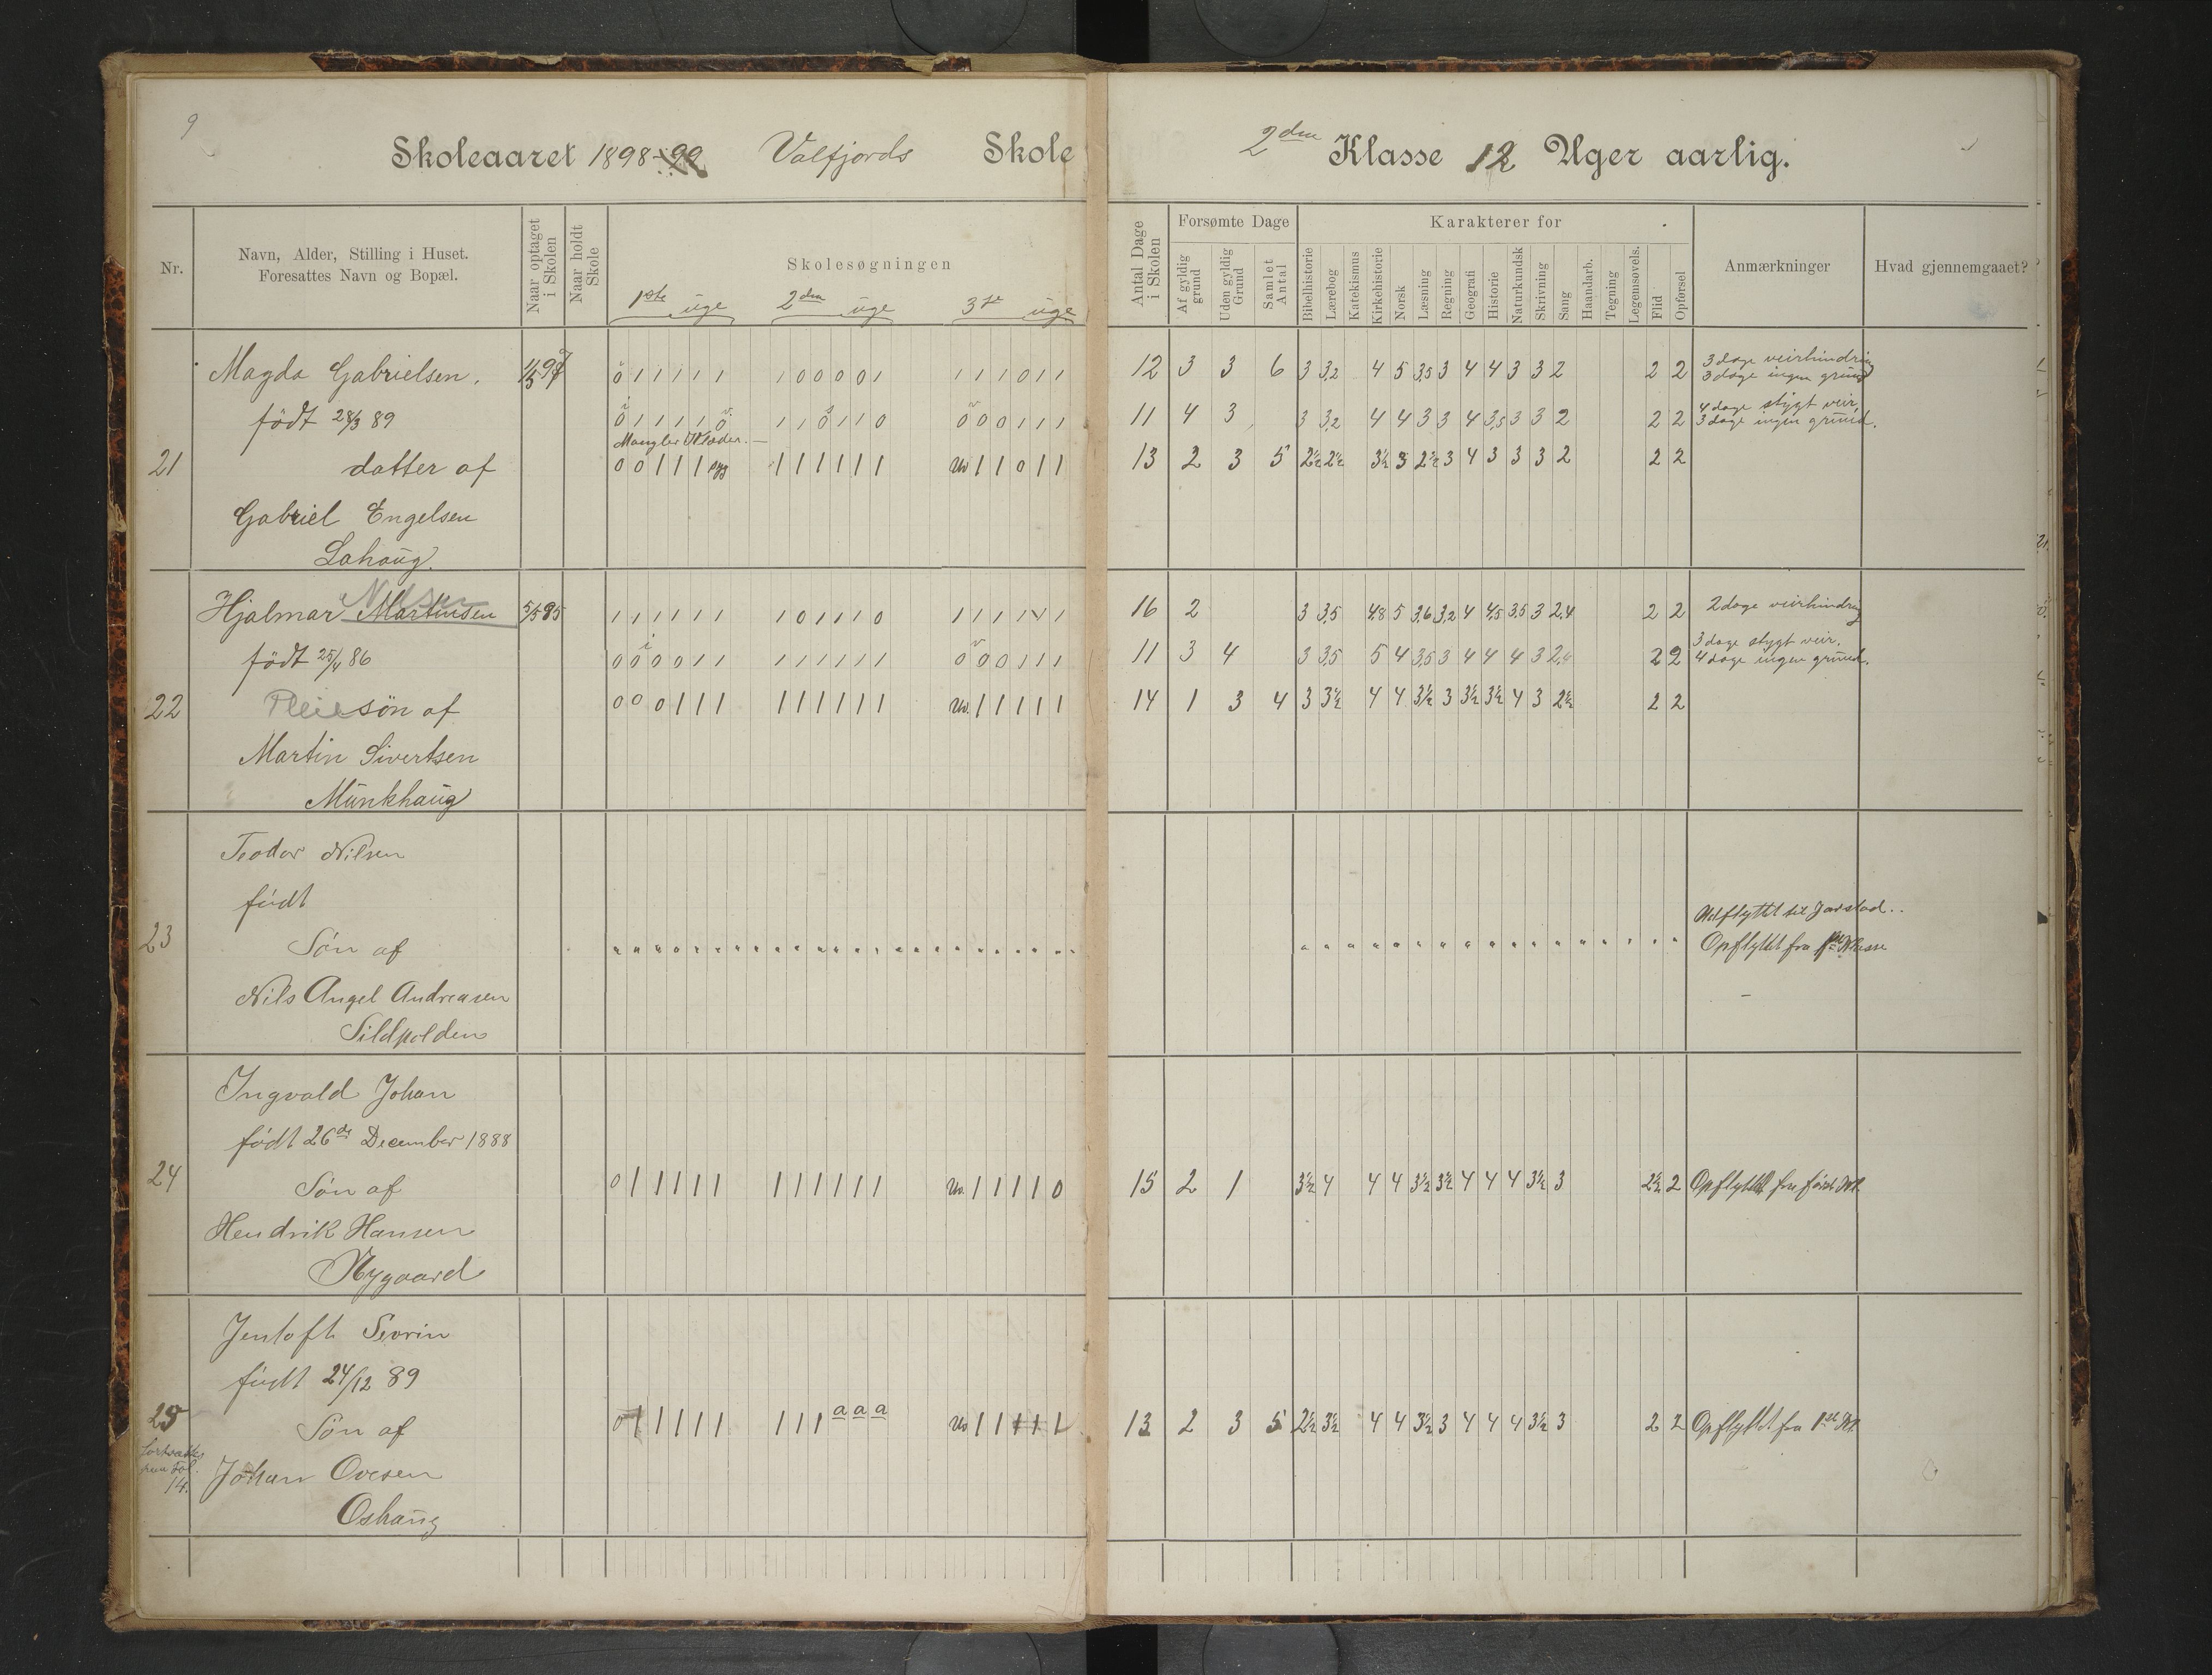 9
Skoleaaret 1898-99 Valfjords Skole
2den Klasse 12 Uger aarlig.
Nr.
Navn, Alder, Stilling i Huset.
Foresattes Navn og Bopæl.
Naar optaget i Skolen
Naar holdt Skole
Skolesøgningen
1ste uge 2den uge 3die uge
Antal Dage i Skolen
Forsømte Dage
Af gyldig grund
Uden gyldig Grund
Samlet Antal
Karakterer for
Bibelhistorie Lærebog Katekismus Kirkehistorie Norsk Læsning Regning Geografi Historie Naturkundsk Skrivning Sang Haandarb. Tegning Legemsøvels. Flid Opførsel
Anmærkninger
Hvad gjennemgaaet?
21
Magda Gabrielsen.
født 28/3 89
datter af
Gabriel Engelsen
Lahaug.
0 1 1 1 1 1 1 0 0 0 0 1 1 1 1 0 1 1
12 3 3 6 3 3,2 4 5 3,5 3 4 4 3 3 2 2 2
3 dage veirhindring
3 dage ingen grund
0 1 1 1 1 0 1 1 0 1 1 0 0 0 0 1 1 1
11 4 3 3 3,2 4 4 3 3 4 3,5 3 3 2 2 2
4 dage stygt veir
3 dage ingen grund.
Mangler Klæder.
0 0 1 1 1 syg 1 1 1 1 1 1 Uv 1 1 0 1 1
13 2 3 5 2½ 2½ 3½ 3 2½ 3 4 3 3 3 2 2 2
22
Hjalmar Martinsen
Nilsen
5/5 95
født 25/4 86
Pleiesøn af
Martin Sivertsen
Munkhaug
1 1 1 1 1 1 1 0 1 1 1 0 1 1 1 1 1 1
16 2 3 3,5 4,8 5 3,6 3,2 4 4,5 3,5 3 2,4 2 2
2 dage veirhindring
0 0 0 0 1 1 1 1 1 1 1 1 0 0 0 1 1 1
11 3 4 3 3,5 5 4 3,5 3 4 4 4 3 2,4 2 2
3 dage stygt veir.
4 dage ingen grund.
0 0 0 1 1 1 1 1 1 1 1 1 Uv. 1 1 1 1 1
14 1 3 4 3 3½ 4 4 3½ 3 3½ 3½ 4 3 2½ 2 2
23
Teodor Nilsen
født
Søn af
Nils Angel Andreasen
Sildpolden
Udflyttet til Jarstad..
Opflyttet fra 1ste Klasse
24
Ingvald Johan
født 26de December 1888
Søn af
Hendrik Hansen
Nygaard
0 1 1 1 1 1 1 1 1 1 1 1 Uv. 1 1 1 1 0
15 2 1 3½ 4 4 4 3½ 3½ 4 4 4 3½ 3 2½ 2
Opflyttet fra første Kl.
25
fortsættes
paa Fol.
14.
Jentoft Sevrin
født 24/12 89
Søn af
Johan Ovesen
Oshaug
0 1 1 1 1 1 1 1 1 a a a Uv 1 1 1 1 1
13 2 3 5 2½ 3½ 4 4 3½ 3 4 4 4 3½ 3 2 2
Opflyttet fra 1ste Kl.